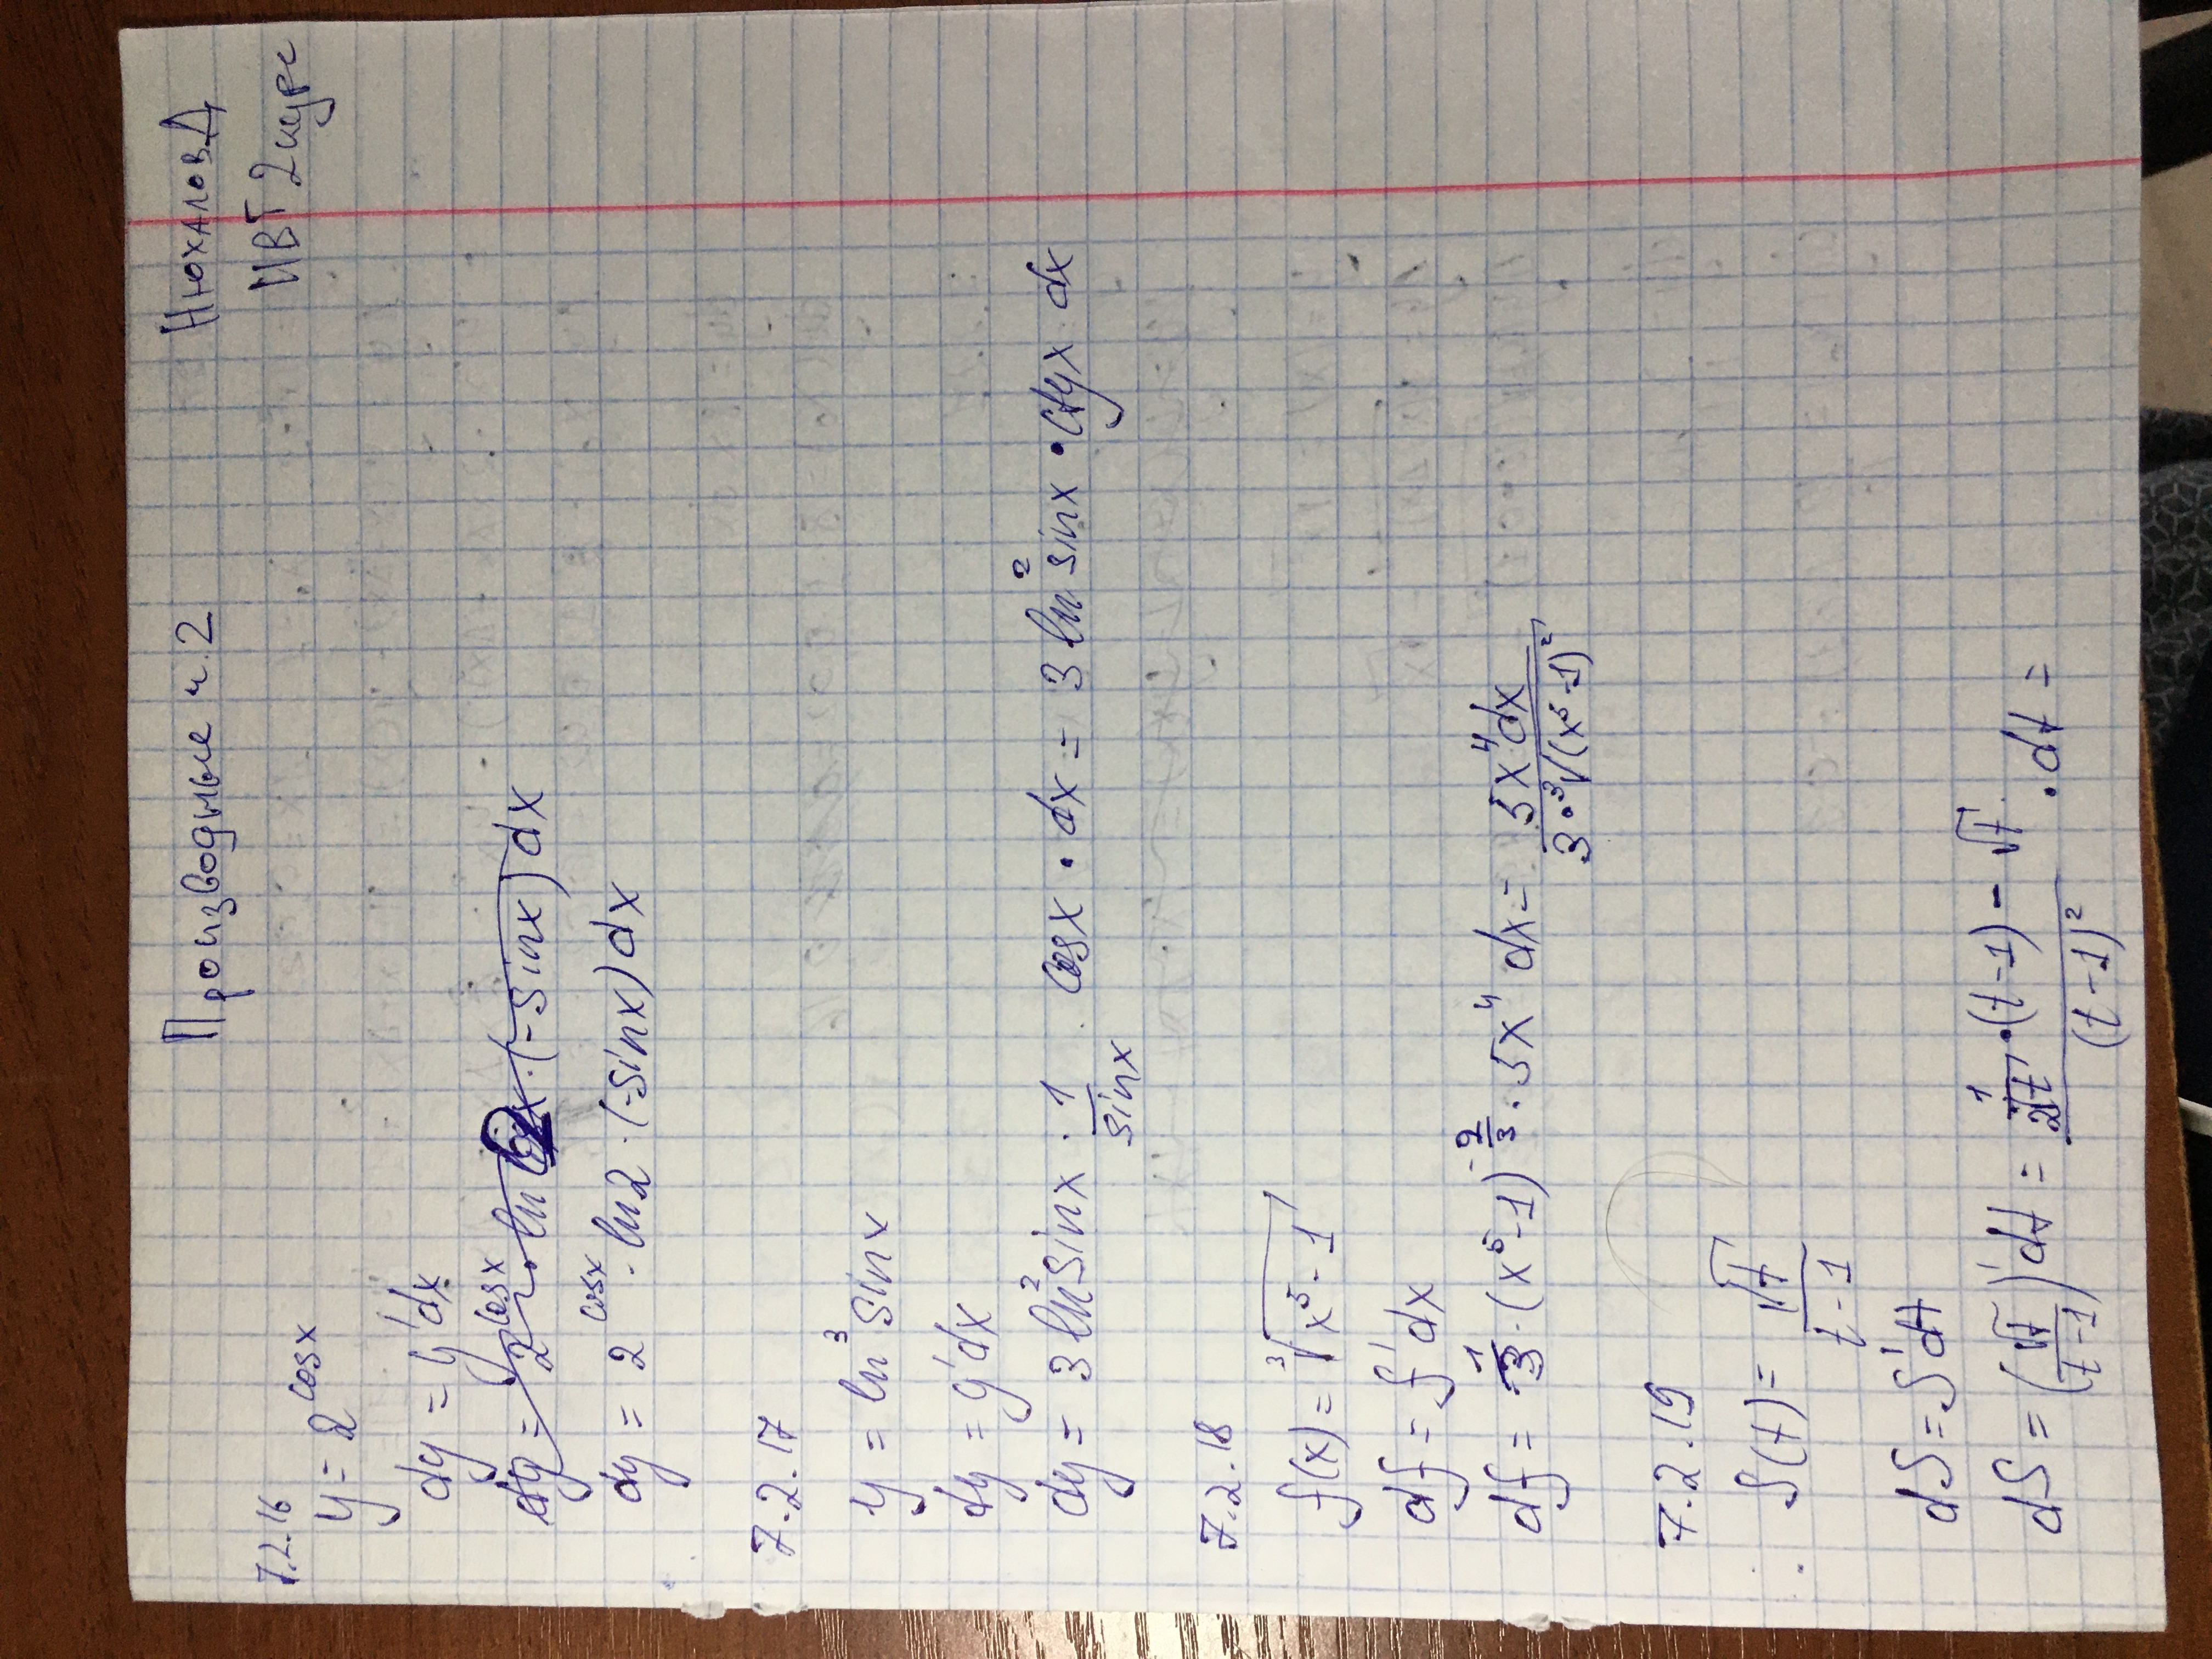 Производные ч.2 Нюхалов Д
ИВТ 2 курс
7.2.16
y = 2^cosx
dy = y'dx
dy = 2^cosx · ln 2 · (-sinx) dx
dy = 2^cosx · ln2 · (-sinx) dx
7.2.17
y = ln³ sinx
dy = y'dx
dy = 3 ln² sinx · 1/sinx · cosx · dx = 3 ln² sinx · ctgx dx
7.2.18
f(x) = ³√(x⁵ - 1)
df = f'dx
df = 1/3 · (x⁵ - 1)^(-2/3) · 5x⁴ dx = 5x⁴dx / 3 · ³√(x⁵ - 1)²
7.2.19
S(t) = √t / (t - 1)
dS = S'dt
dS = (√t / (t-1))' dt = (1/(2√t) · (t-1) - √t) / (t-1)² · dt =